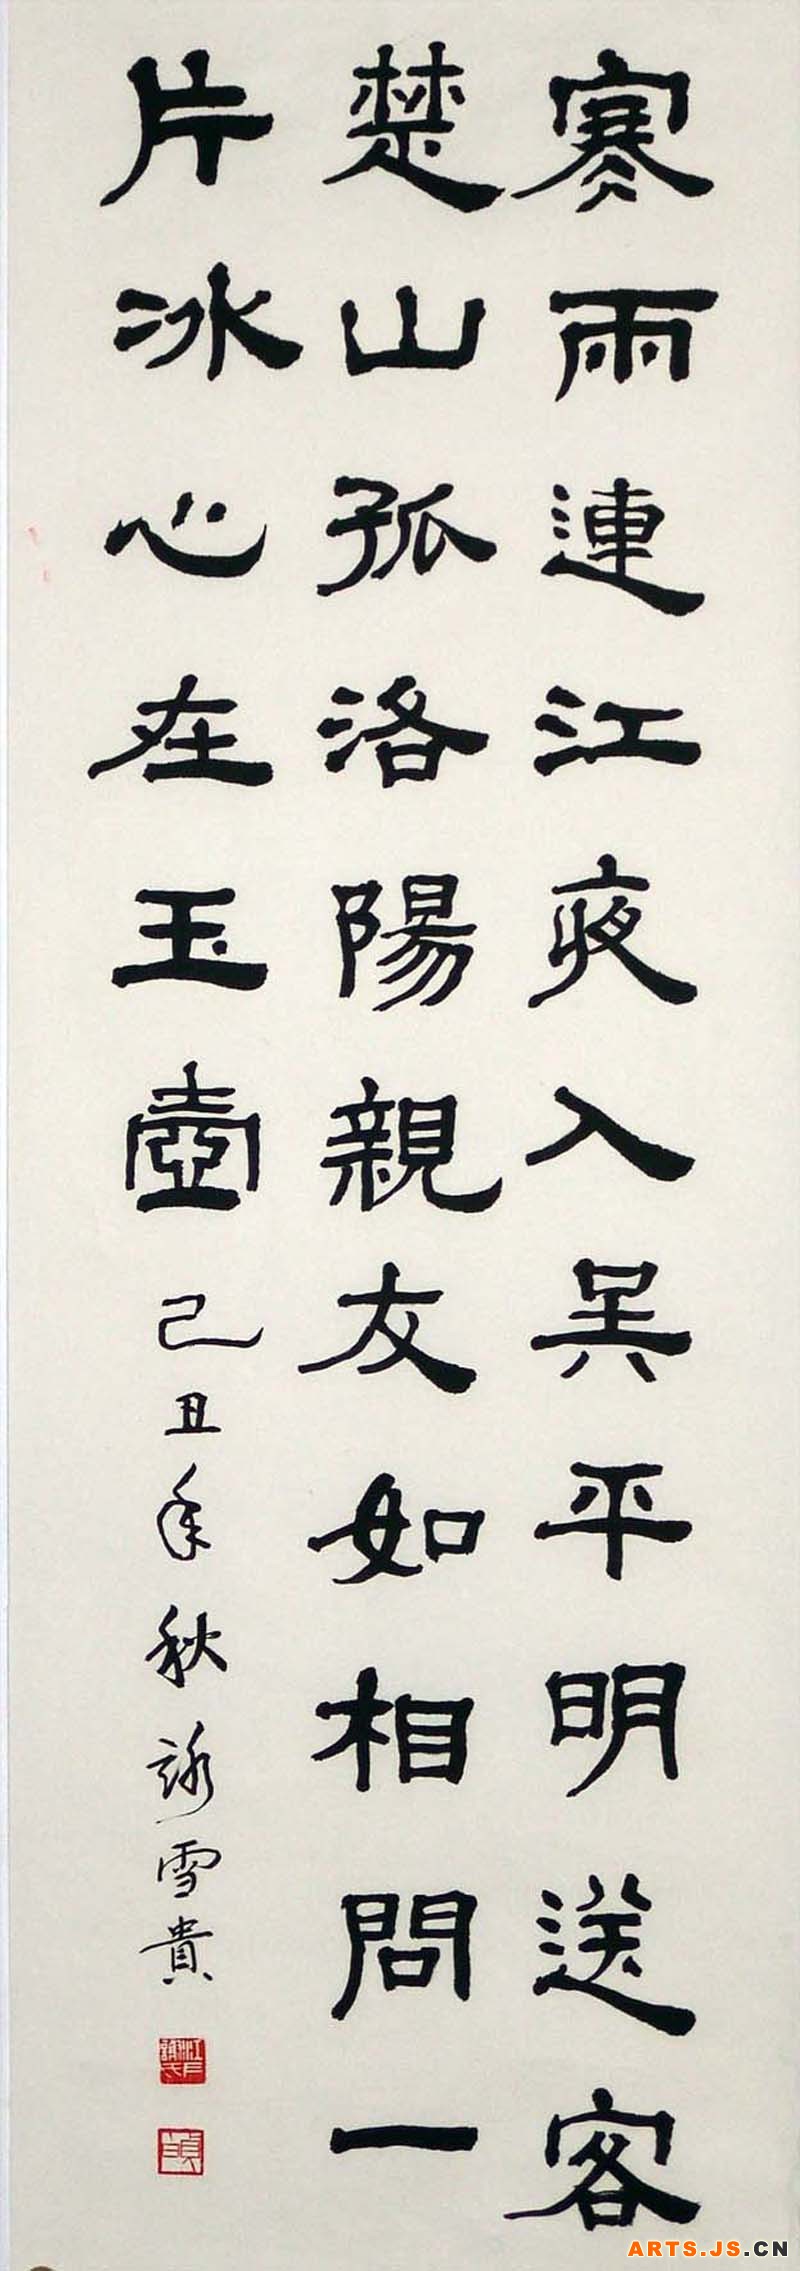 寒雨連江夜入吴平明送客
楚山孤洛陽親友如相問一
片冰心在玉壺 己丑年秋詠雪貴
ARTS.JS.CN